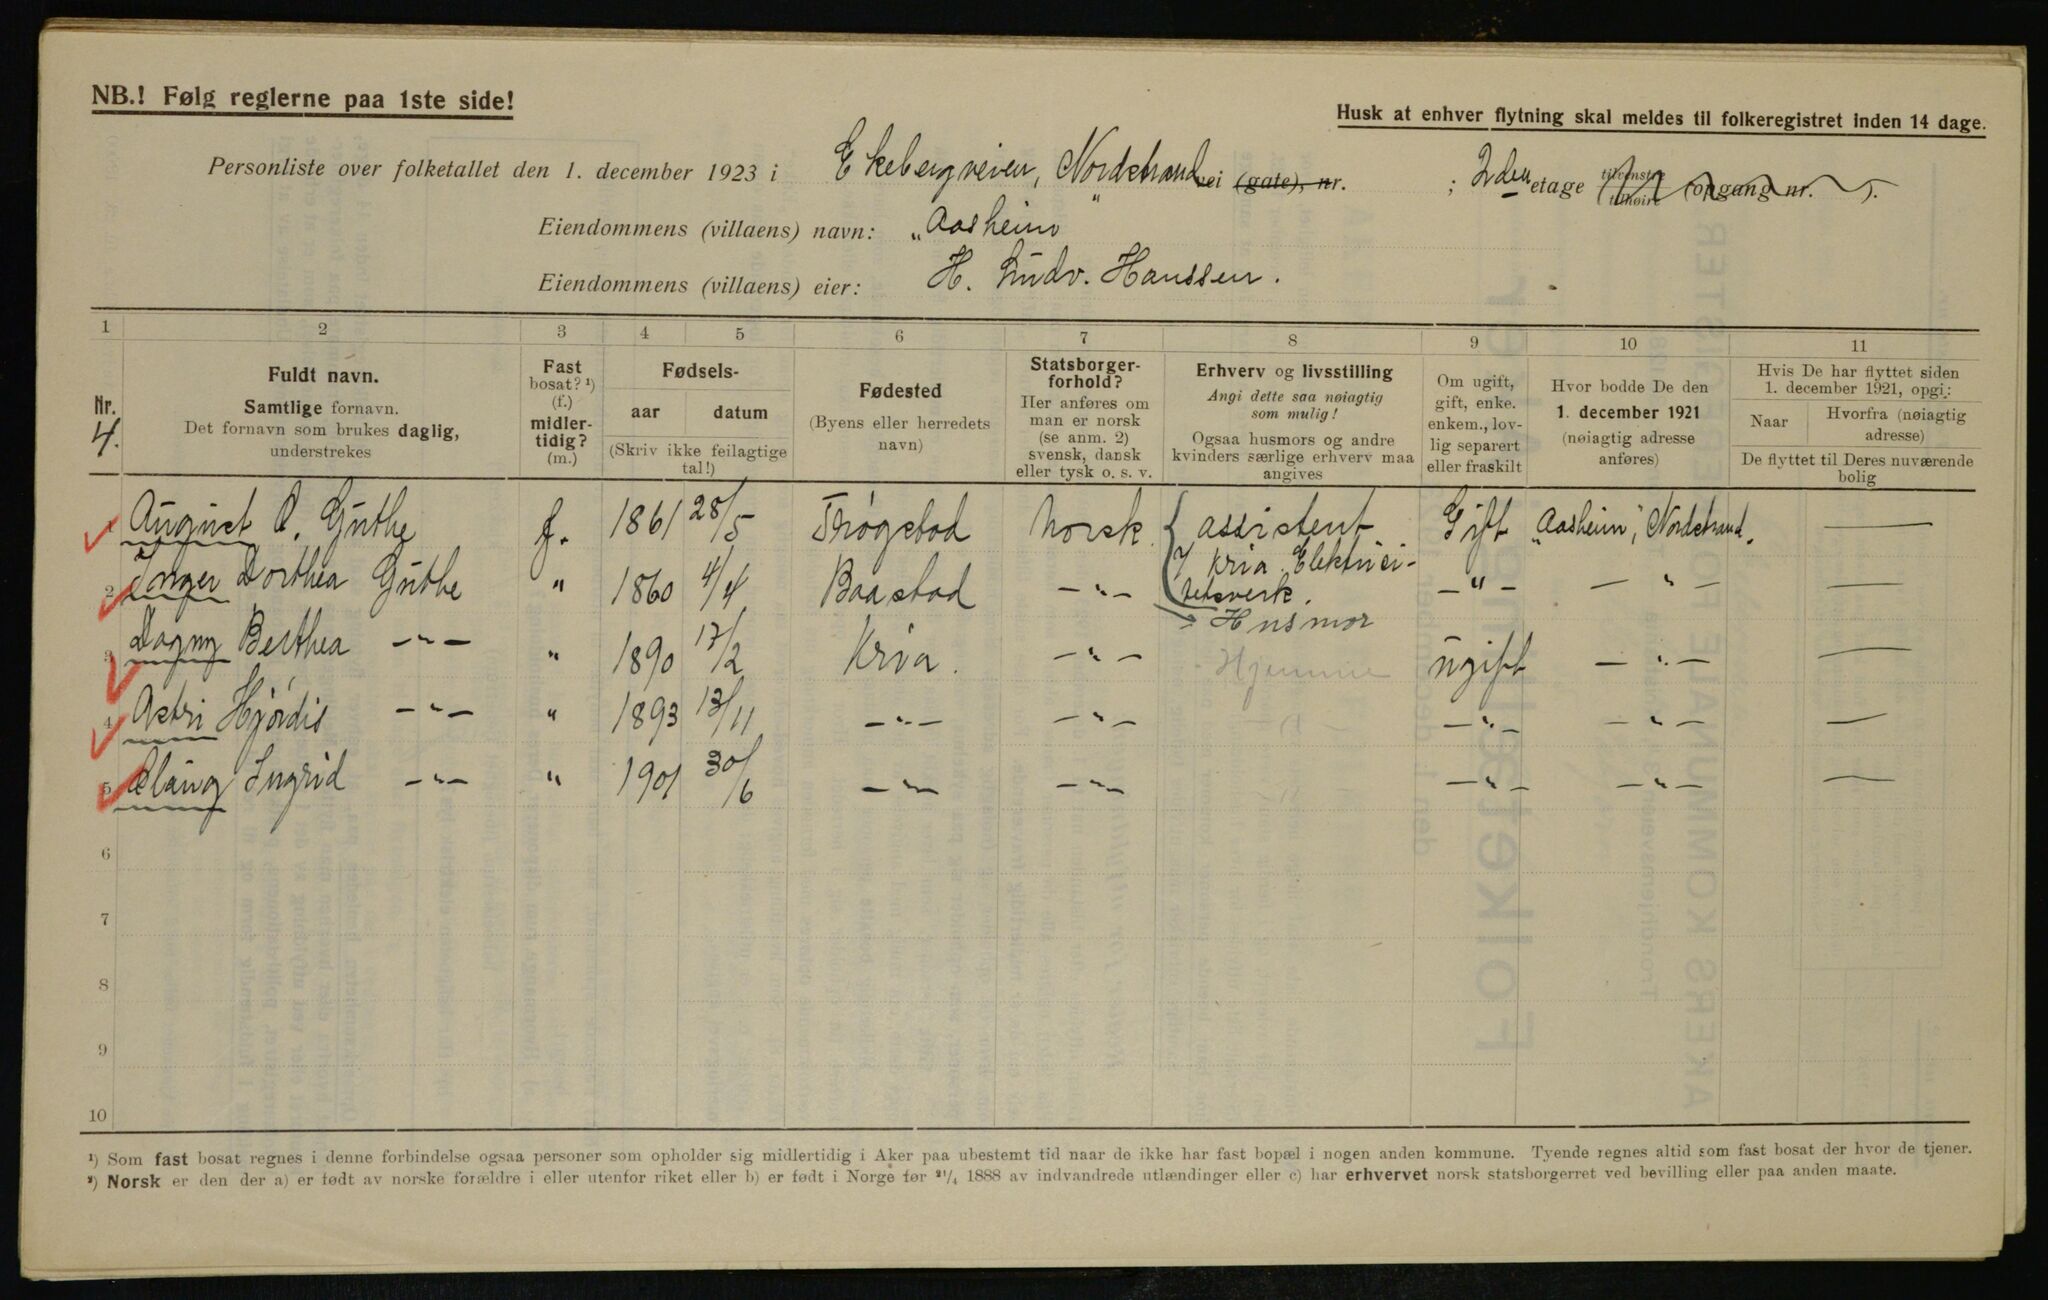 NB.! Følg reglerne paa 1ste side!
Husk at enhver flytning skal meldes til folkeregistret inden 14 dage.
Personliste over folketallet den 1. december 1923 i Ekebergveien, Nordstrand vei (gate), nr. ; 2den etage tilvenstre tilhøire (opgang nr. ).
Eiendommens (villaens) navn: „Aasheim"
Eiendommens (villaens) eier: H. Ludv. Hanssen.
1 2 3 4 5 6 7 8 9 10 11
Nr. 4.
Fuldt navn.
Samtlige fornavn.
Det fornavn som brukes daglig,
understrekes
Fast
bosat? ¹)
(f.)
midler-
tidig?
(m.)
Fødsels-
aar datum
(Skriv ikke feilagtige
tal!)
Fødested
(Byens eller herredets
navn)
Statsborger-
forhold?
Her anføres om
man er norsk
(se anm. 2)
svensk, dansk
eller tysk o. s. v.
Erhverv og livsstilling
Angi dette saa nøiagtig
som mulig!
Ogsaa husmors og andre
kvinders særlige erhverv maa
angives
Om ugift,
gift, enke.
enkem., lov-
lig separert
eller fraskilt
Hvor bodde De den
1. december 1921
(nøiagtig adresse
anføres)
Hvis De har flyttet siden
1. december 1921, opgi:
Naar Hvorfra (nøiagtig
adresse)
De flyttet til Deres nuværende
bolig
1 August O. Guthe f. 1861 28/5 Trøgstad Norsk. Assistent Gift „Aasheim", Nordstrand. —
v/ Kria. Elektrici-
2 Inger Dorthea Guthe " 1860 4/4 Baastad —"— tetsverk. —"— —"— —
Husmor
3 Dagny Berthea —"— " 1890 17/2 Kria. —"— Hjemme ugift —"— —
4 Astri Hjørdis —"— " 1893 13/11 —"— —"— —"— —"— —
5 Ingrid —"— " 1901 30/6 —"— —"— —"— —"— —
6
7
8
9
10
¹) Som fast bosat regnes i denne forbindelse ogsaa personer som opholder sig midlertidig i Aker paa ubestemt tid naar de ikke har fast bopæl i nogen anden kommune. Tyende regnes altid som fast bosat der hvor de tjener.
²) Norsk er den der a) er født av norske forældre i eller utenfor riket eller b) er født i Norge før ²¹/₄ 1888 av indvandrede utlændinger eller c) har erhvervet norsk statsborgerret ved bevilling eller paa anden maate.